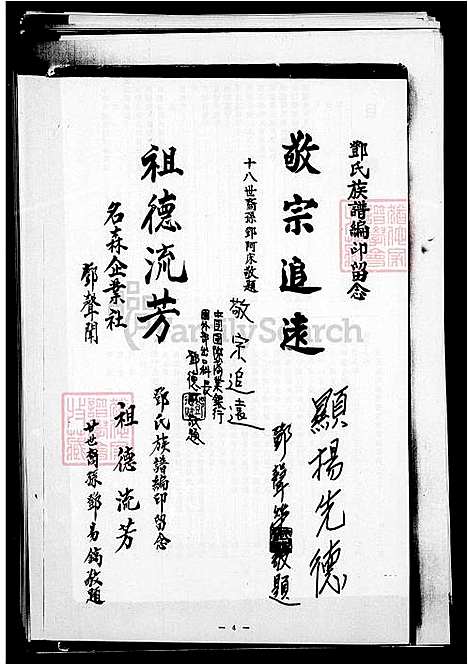 鄧氏族譜編印留念
敬宗追遠
十八世裔孫鄧阿床敬題
顯揚先德
鄧聲
敬題
敬宗追遠
中國國際商業銀行
國外部出口科長
鄧德
敬題
祖德流芳
名森企業社
鄧聲開
鄧氏族譜編印留念
祖德流芳
廿世裔孫鄧易鏑敬題
FamilySearch
- 4 -